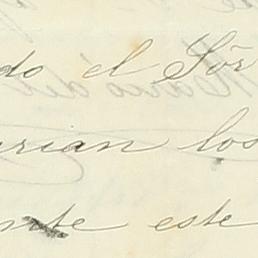 do el Sõr
urian los
nte este